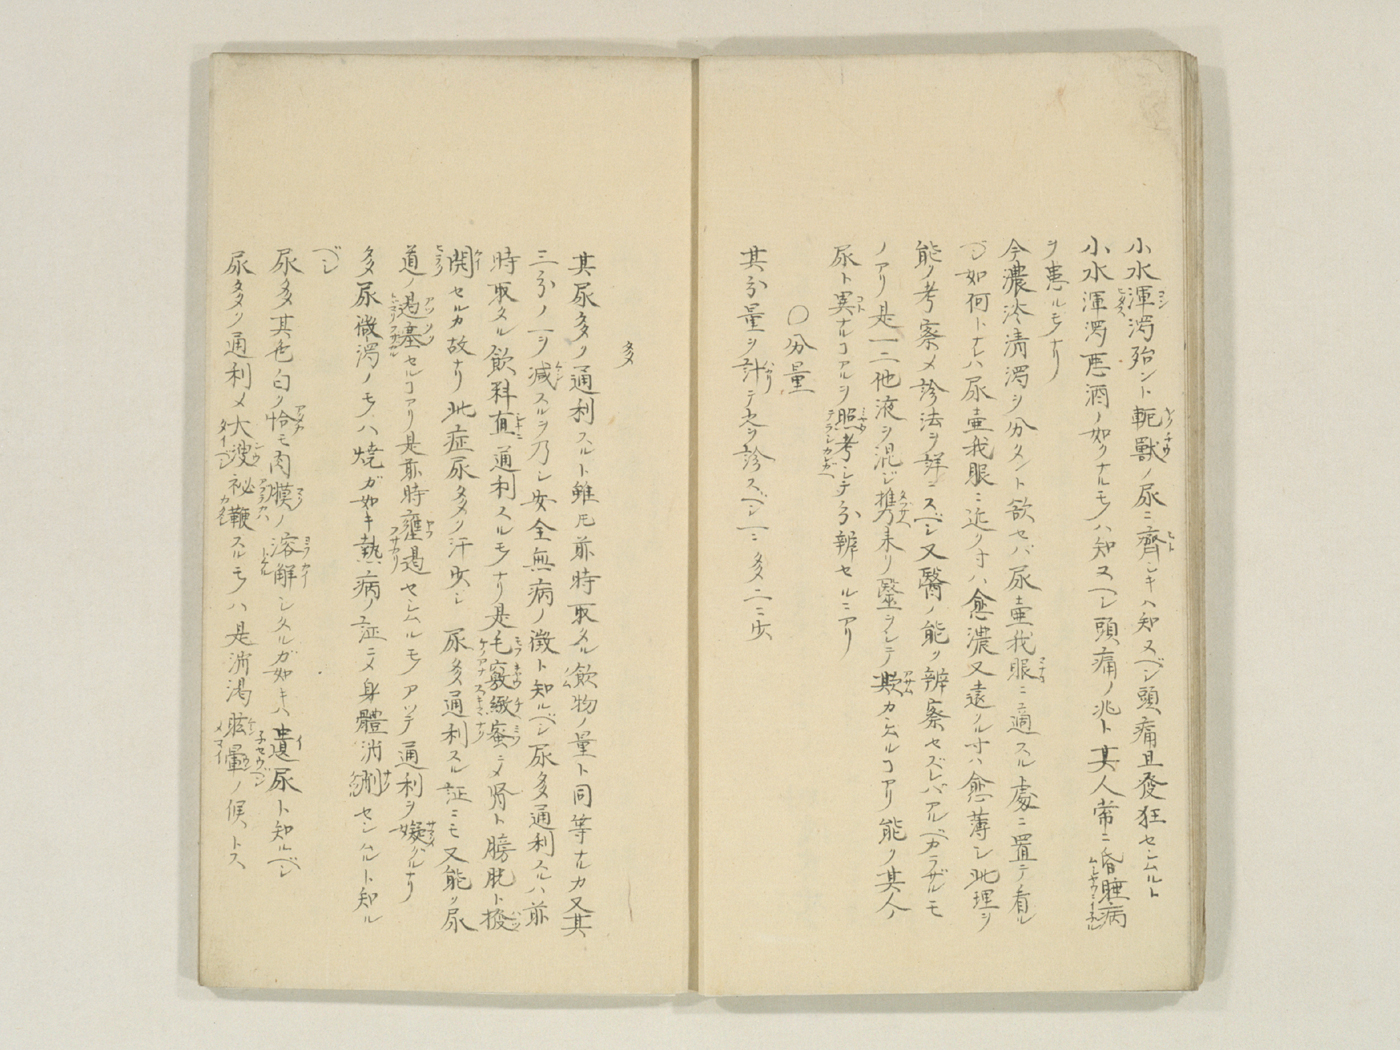 小水渾濁殆ント軛獸ノ尿ニ齊シキハ知ヌベシ頭痛且發狂セシムルト
小水渾濁悪酒ノ如クナルモノハ知ヌベシ頭痛ノ兆ト其人常ニ昏睡病
ヲ患ルモノナリ
今濃淡清濁ヲ分タント欲セバ尿壷我眼ニ適スル處ニ置テ看ル
ベシ如何トナレハ尿壷我眼ニ近クキハ愈濃又遠クルキハ愈薄シ此理ヲ
能ク考察メ診法ヲ詳ニスベシ又醫ノ能ク辨察セズンバアルベカラザルモ
ノアリ是一二他液ヲ混シ携来リ醫ヲシテ欺カシムルコアリ能ク其人ノ
尿ト異ナルコアルヲ照考シテ分辨セルニアリ
〇分量
其分量ヲ計テ之ヲ診スベシ一ニ多二ニ少
多
其尿多ク通利スルト雖𪜈前時取タル飲物ノ量ト同等ナルカ又其
三分ノ一ヲ減スルヲ乃シ安全無病ノ徴ト知ルベシ尿多通利スルハ前
時取タル飲料直通利スルモノナリ是毛竅緻蜜ニメ腎ト膀胱ト擴
開セルカ故ナリ此症尿多ク汗少シ 尿多通利スル証ニモ又能ク尿
道ノ遏塞セルコアリ是前時壅遏セシムルモノアツテ通利ヲ礙ルナリ
多尿微濁ノモノハ焼ガ如キ熱病ノ証ニメ身體消削セシムルト知ル
ベシ
尿多其色白ク恰モ肉膜ノ溶解シタルガ如キハ遺尿ト知ルベシ
尿多クヽ通利メ大溲祕鞭スルモノハ是消渇眩暈ノ候トス